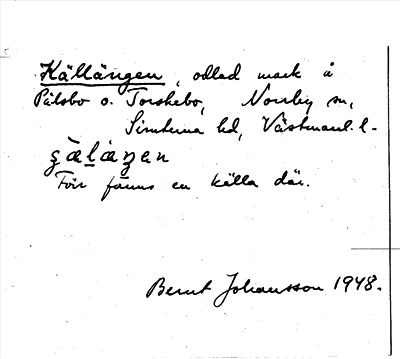 Källängen, odlad mark å
Pålsbo o. Torskebo, Norrby sn,
Simtuna hd, Västmanl. l-
Förr fanns en källa där.
Bernt Johansson 1948.